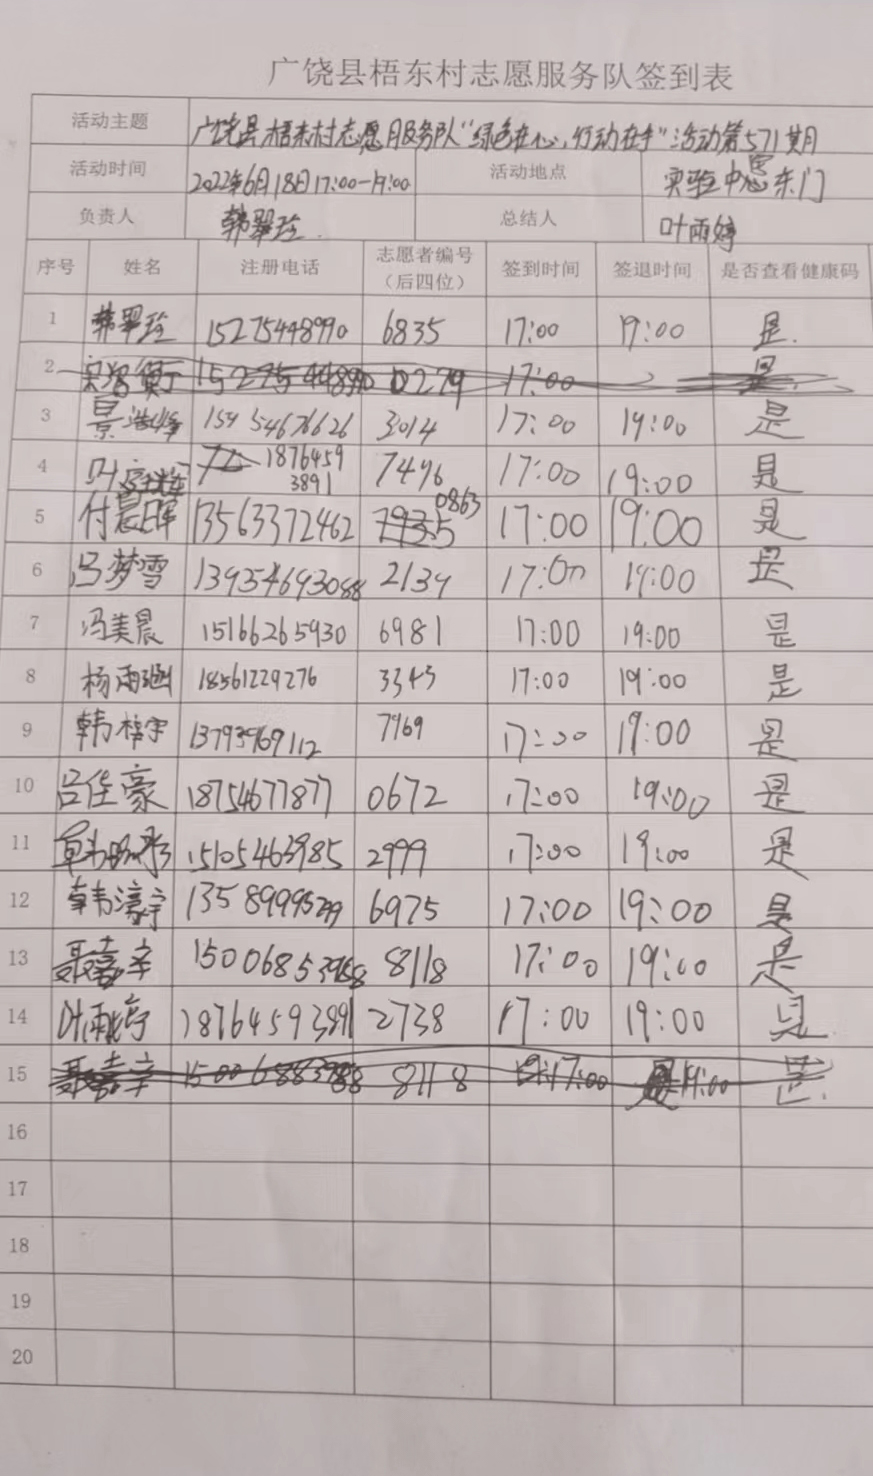 广饶县梧东村志愿服务队签到表
活动主题 广饶县梧东村志愿服务队"绿色在心,行动在手"活动第571期
活动时间 2022年6月18日17:00-19:00 活动地点 实验中学东门
负责人 韩翠玲 总结人 叶雨婷
序号 姓名 注册电话 志愿者编号（后四位） 签到时间 签退时间 是否查看健康码
1 韩翠玲 15275448990 6835 17:00 19:00 是.
2 15275448990 0279 17:00 是
3 景浩峰 15454676626 3014 17:00 19:00 是
4 叶 18764593891 7496 17:00 19:00 是
5 付晨晖 13563372462 7935 0863 17:00 19:00 是
6 吕梦雪 13954693088 2139 17:00 19:00 是
7 冯美晨 15166265930 6981 17:00 19:00 是
8 杨雨涵 18561229276 3343 17:00 19:00 是
9 韩梓宇 13793969112 7969 17:00 19:00 是
10 吕佳豪 18754677877 0672 17:00 19:00 是
11 韩 15105463985 2999 17:00 19:00 是
12 韩濠宇 6975 17:00 19:00 是
13 聂嘉辛 8118 17:00 19:00 是
14 叶雨婷 18764593891 2738 17:00 19:00 是
15 聂嘉辛 8118 17:00 19:00 是.
16
17
18
19
20